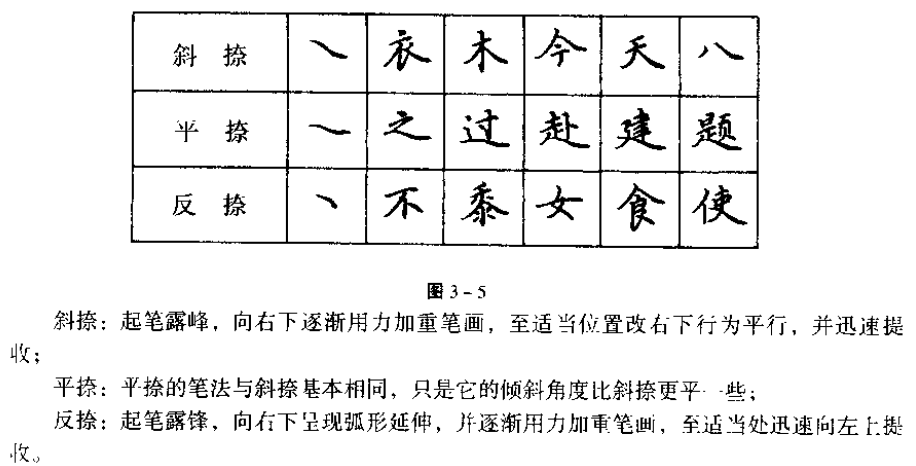 斜捺 ㇏ 衣 木 今 天 八
平捺 ㇏ 之 过 赴 建 题
反捺 丶 不 黍 女 食 使
图 3-5
斜捺：起笔露峰，向右下逐渐用力加重笔画，至适当位置改右下行为平行，并迅速提
收；
平捺：平捺的笔法与斜捺基本相同，只是它的倾斜角度比斜捺更平一些；
反捺：起笔露锋，向右下呈现弧形延伸，并逐渐用力加重笔画，至适当处迅速向左上提
收。